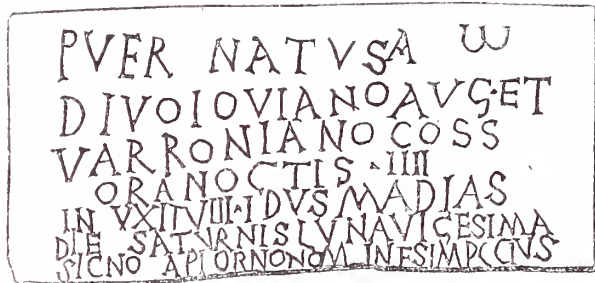 PVER NATVSA ω
DIVOIOVIANOAVG·ET
VARRONIANO COSS
ORANOCTIS·IIII
IN VXITVIII·IDVSMADIAS
DIE SATVRNISLVNAVIGESIMA
SIGNO APIORNONOM INE